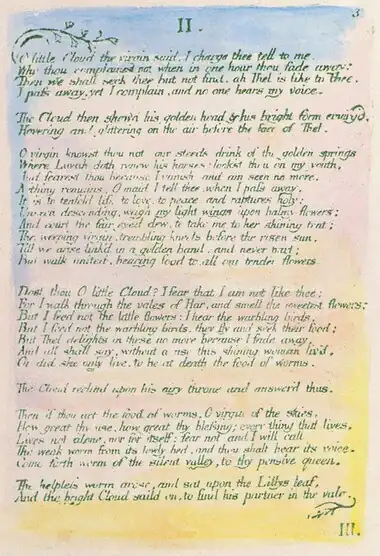 3
II.
O little Cloud the virgin said, I charge thee tell to me,
Why thou complainest not when in one hour thou fade away:
Then we shall seek thee but not find; ah Thel is like to thee.
I pass away, yet I complain, and no one hears my voice.
The Cloud then shew'd his golden head & his bright form emerg'd,
Hovering and glittering on the air before the face of Thel.
O virgin know'st thou not our steeds drink of the golden springs
Where Luvah doth renew his horses: look'st thou on my youth,
And fearest thou because I vanish and am seen no more.
Nothing remains; O maid I tell thee, when I pass away,
It is to tenfold life, to love, to peace, and raptures holy:
Unseen descending, weigh my light wings upon balmy flowers;
And court the fair eyed dew, to take me to her shining tent;
The weeping virgin, trembling kneels before the risen sun,
Till we arise link'd in a golden band, and never part;
But walk united, bearing food to all our tender flowers
Dost thou O little Cloud? I fear that I am not like thee;
For I walk through the vales of Har, and smell the sweetest flowers;
But I feed not the little flowers: I hear the warbling birds,
But I feed not the warbling birds, they fly and seek their food;
But Thel delights in these no more because I fade away,
And all shall say, without a use this shining woman liv'd,
Or did she only live, to be at death the food of worms.
The Cloud reclind upon his airy throne and answer'd thus.
Then if thou art the food of worms, O virgin of the skies,
How great thy use, how great thy blessing; every thing that lives,
Lives not alone, nor for itself: fear not and I will call
The weak worm from its lowly bed, and thou shalt hear its voice.
Come forth worm of the silent valley, to thy pensive queen.
The helpless worm arose, and sat upon the Lillys leaf,
And the bright Cloud saild on, to find his partner in the vale.
III.